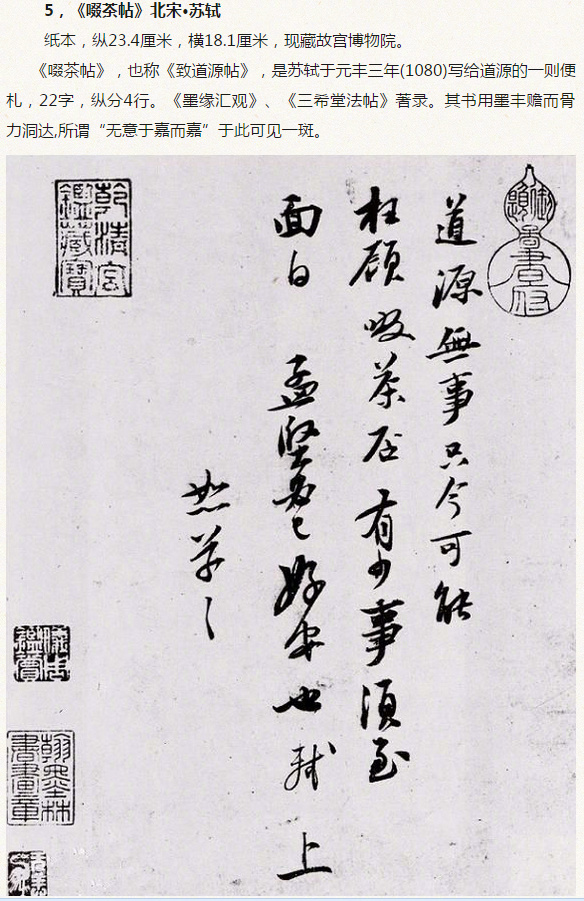 5，《啜茶帖》北宋•苏轼
纸本，纵23.4厘米，横18.1厘米，现藏故宫博物院。
《啜茶帖》，也称《致道源帖》，是苏轼于元丰三年(1080)写给道源的一则便
札，22字，纵分4行。《墨缘汇观》、《三希堂法帖》著录。其书用墨丰赡而骨
力洞达,所谓“无意于嘉而嘉”于此可见一斑。
道源無事只今可能
枉顧啜茶否有少事須至
面白 孟堅必已好安也 軾 上
恕草々
乾清宮鑑藏寶
翰墨林書畫章